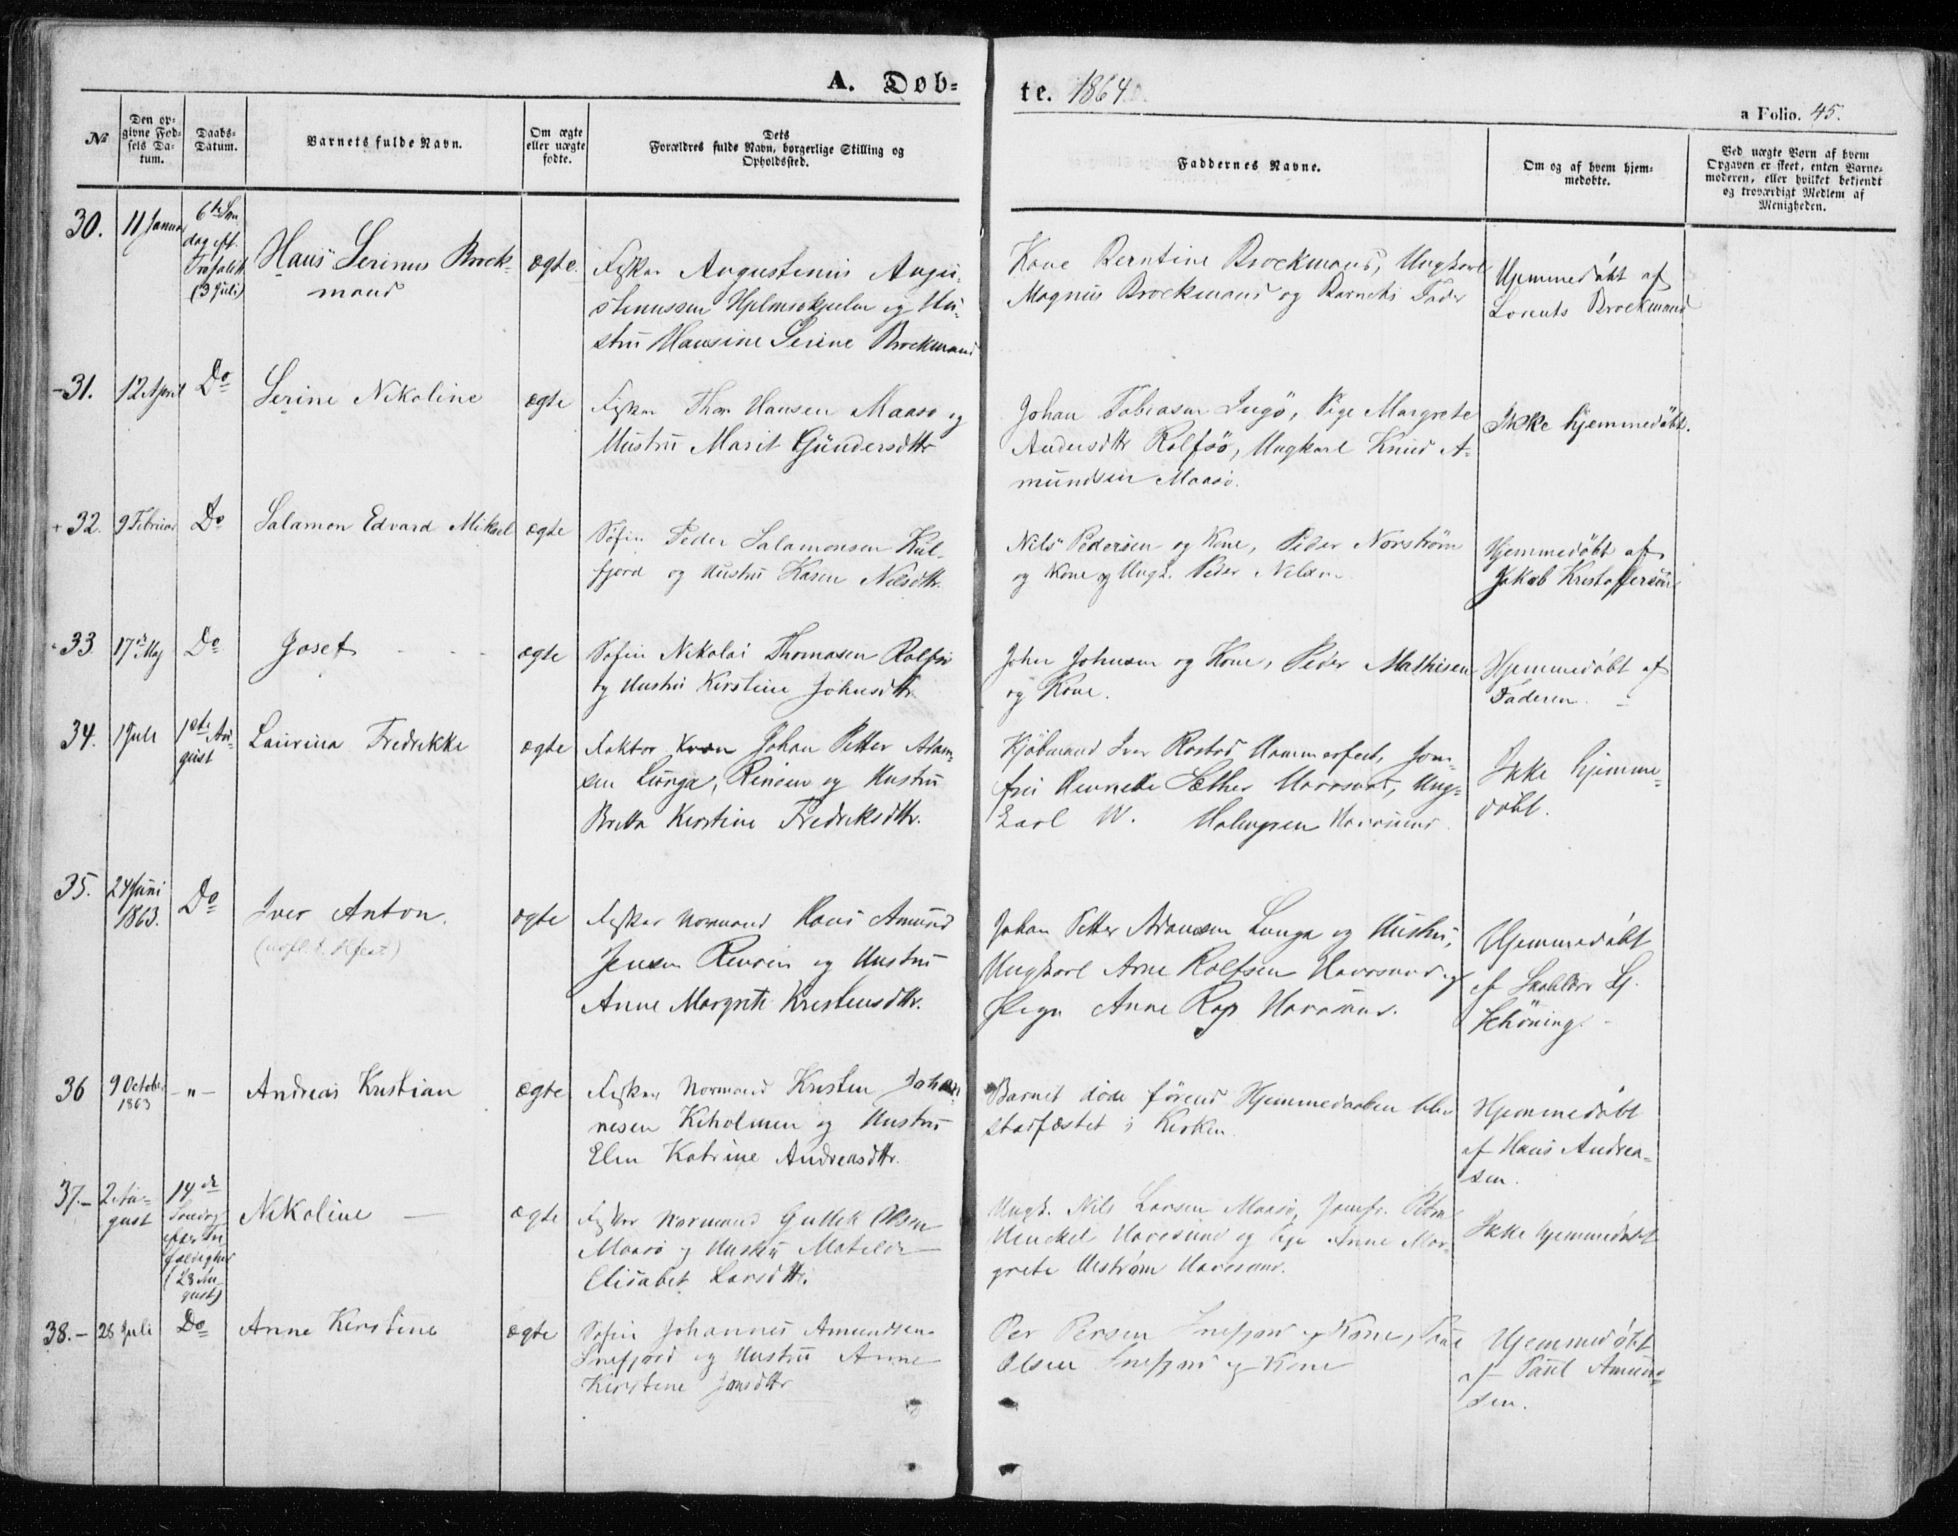 A. Døb=
te. 1864.
a Folio. 45.
№
Den op=
givne Fød=
sels Da=
tum.
Daabs=
Datum.
Barnets fulde Navn.
Om ægte
eller uægte
fødte.
Dets
Forældres fulde Navn, borgerlige Stilling og
Opholdssted.
Faddernes Navne.
Om og af hvem hjem=
medøbte.
Ved uægte Børn af hvem
Opgaven er skeet, enten Barne=
moderen, eller hvilket bekjendt
og troværdigt Medlem af
Menigheden.
30.
11 Januar
6te Søn
dag eft.
Trefoldt.
(3 Juli)
Hans Serinus Brock=
mand
ægte.
Fisker Augustinius Augu=
stinussen Hjelmsøkjeilen og Hu=
stru Hansine Serine Brockmand
Kone Berntine Brockmand, Ungkarl
Magnus Brockmand og Barnets Fader
Hjemmedøbt af
Lorents Brockmand
31.
12 April
Do
Serine Nikoline
ægte
Fisker Thor Hansen Maasø og
Hustru Marit Gundersdttr
Johan Tobiasen Ingø, Pige Margrete
Andersdttr Rolfsø, Ungkarl Knud A=
mundsen Maasø.
Ikke hjemmedøbt.
+ 32.
9 Februar
Do
Salamon Edvard Mikael
ægte
Søfin Peder Salamonsen Kul=
fjord og Hustru Karen Nilsdttr.
Nils Pedersen og Kone, Peder Norstrøm
og Kone og Ungk. Peder Nilsen
Hjemmedøbt af
Jakob Kristoffersen
33
17de Maj
Do
Josef
ægte
Søfin Nikolai Thomasen Rolfsø
og Hustru Kirstine Johnsdttr.
John Johnsen og Kone, Peder Mathisen
og Kone.
Hjemmedøbt af
Faderen.
34.
1 Juli
1ste Au=
gust
Laurina Fredrikke
ægte
Faktor Kvæn Johan Petter Adam=
sen Lunga, Renøen og Hustru
Britta Kirstine Fredriksdttr.
Kjøbmand Iver Rostad Hammerfest, Jom=
fru Hennette Sæther Havøsund, Ung=
Carl W. Holmgren Havøsund.
Ikke hjemme=
døbt.
35.
24 Juni
1863.
Do
Iver Anton.
ægte
Fisker Normand Hans Amund
Jensen Renøen og Hustru
Anne Margrete Kristensdttr.
Johan Petter Adamsen Lunga og Hustru,
Ungkarl Arne Rolfsen Havøsund og
Pige Anne Rap Havøsund.
Hjemmedøbt
af Skolelær
Schöning.
36
9 October
1863
- " -
Andreas Kristian
ægte
Fisker Normand Kristen Johan=
nesen Keholmen og Hustru
Elen Katrine Andreasdttr.
Barnet døde førend Hjemmedaaben blev
stadfæstet i Kirken.
Hjemmedøbt
af Hans Andrea=
sen.
37.
2 Au=
gust
14de
Søndag
efter Tre
foldighed
(28 Au
gust)
Nikoline
ægte
Fisker Normand Gullik Olsen
Maasø og Hustru Matilde
Elisabet Larsdttr.
Ungk. Nils Larsen Maasø, Jomfr. Petra
Henckel Havøsund og Pige Anne Mar=
grete Uhstrøm Havøsund.
Ikke hjemmedøbt
38.
28 Juli
Do
Anne Kirstine
ægte
Søfin Johannes Amundsen
Snefjord og Hustru Anne
Kirstine Jonsdttr
Per Persen Snefjord og Kone, Paul
Olsen Snefjord og Kone
Hjemmedøbt
af Paul Amund=
sen.